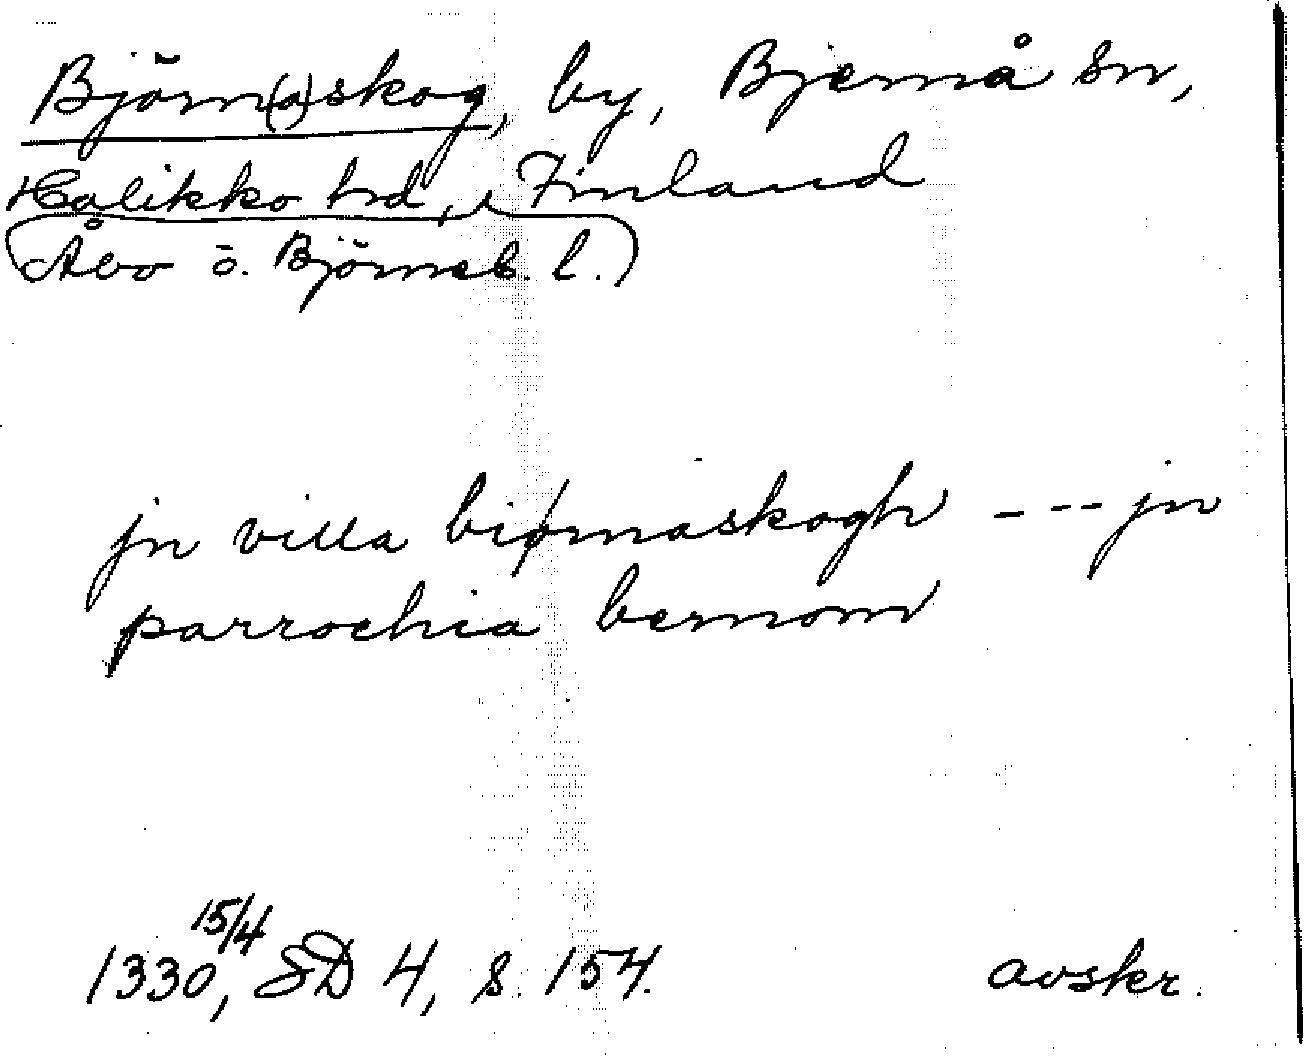 Björn(a)skog, by, Bjernå sn,
Halikko hd, Finland
(Åbo o. Björneb. l.)
jn villa biørnaskogh --- jn
parrochia bernom
1330 15/4, SD 4, s. 154.
avskr.